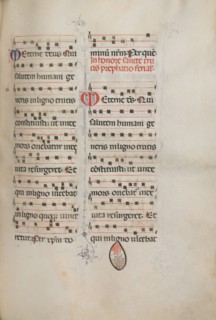 Eterne deus Qui
salutem humani ge
neris in ligno crucis
constituisti ut unde
mors oriebatur inde
vita resurgeret. Et
qui in ligno vincebat
in ligno quoq; vince
retur. Per xp̄m do
minū nr̄m. Per quē
In honore sancte cru
cis prephatio ferial.
Eterne ds Qui
salutem humani ge
neris in ligno crucis
constituisti ut unde
mors oriebatur inde
vita resurgeret. Et
qui in ligno vincebat